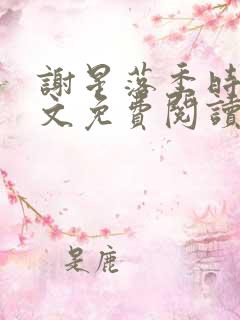 謝星落季時
文免費閱讀
是鹿